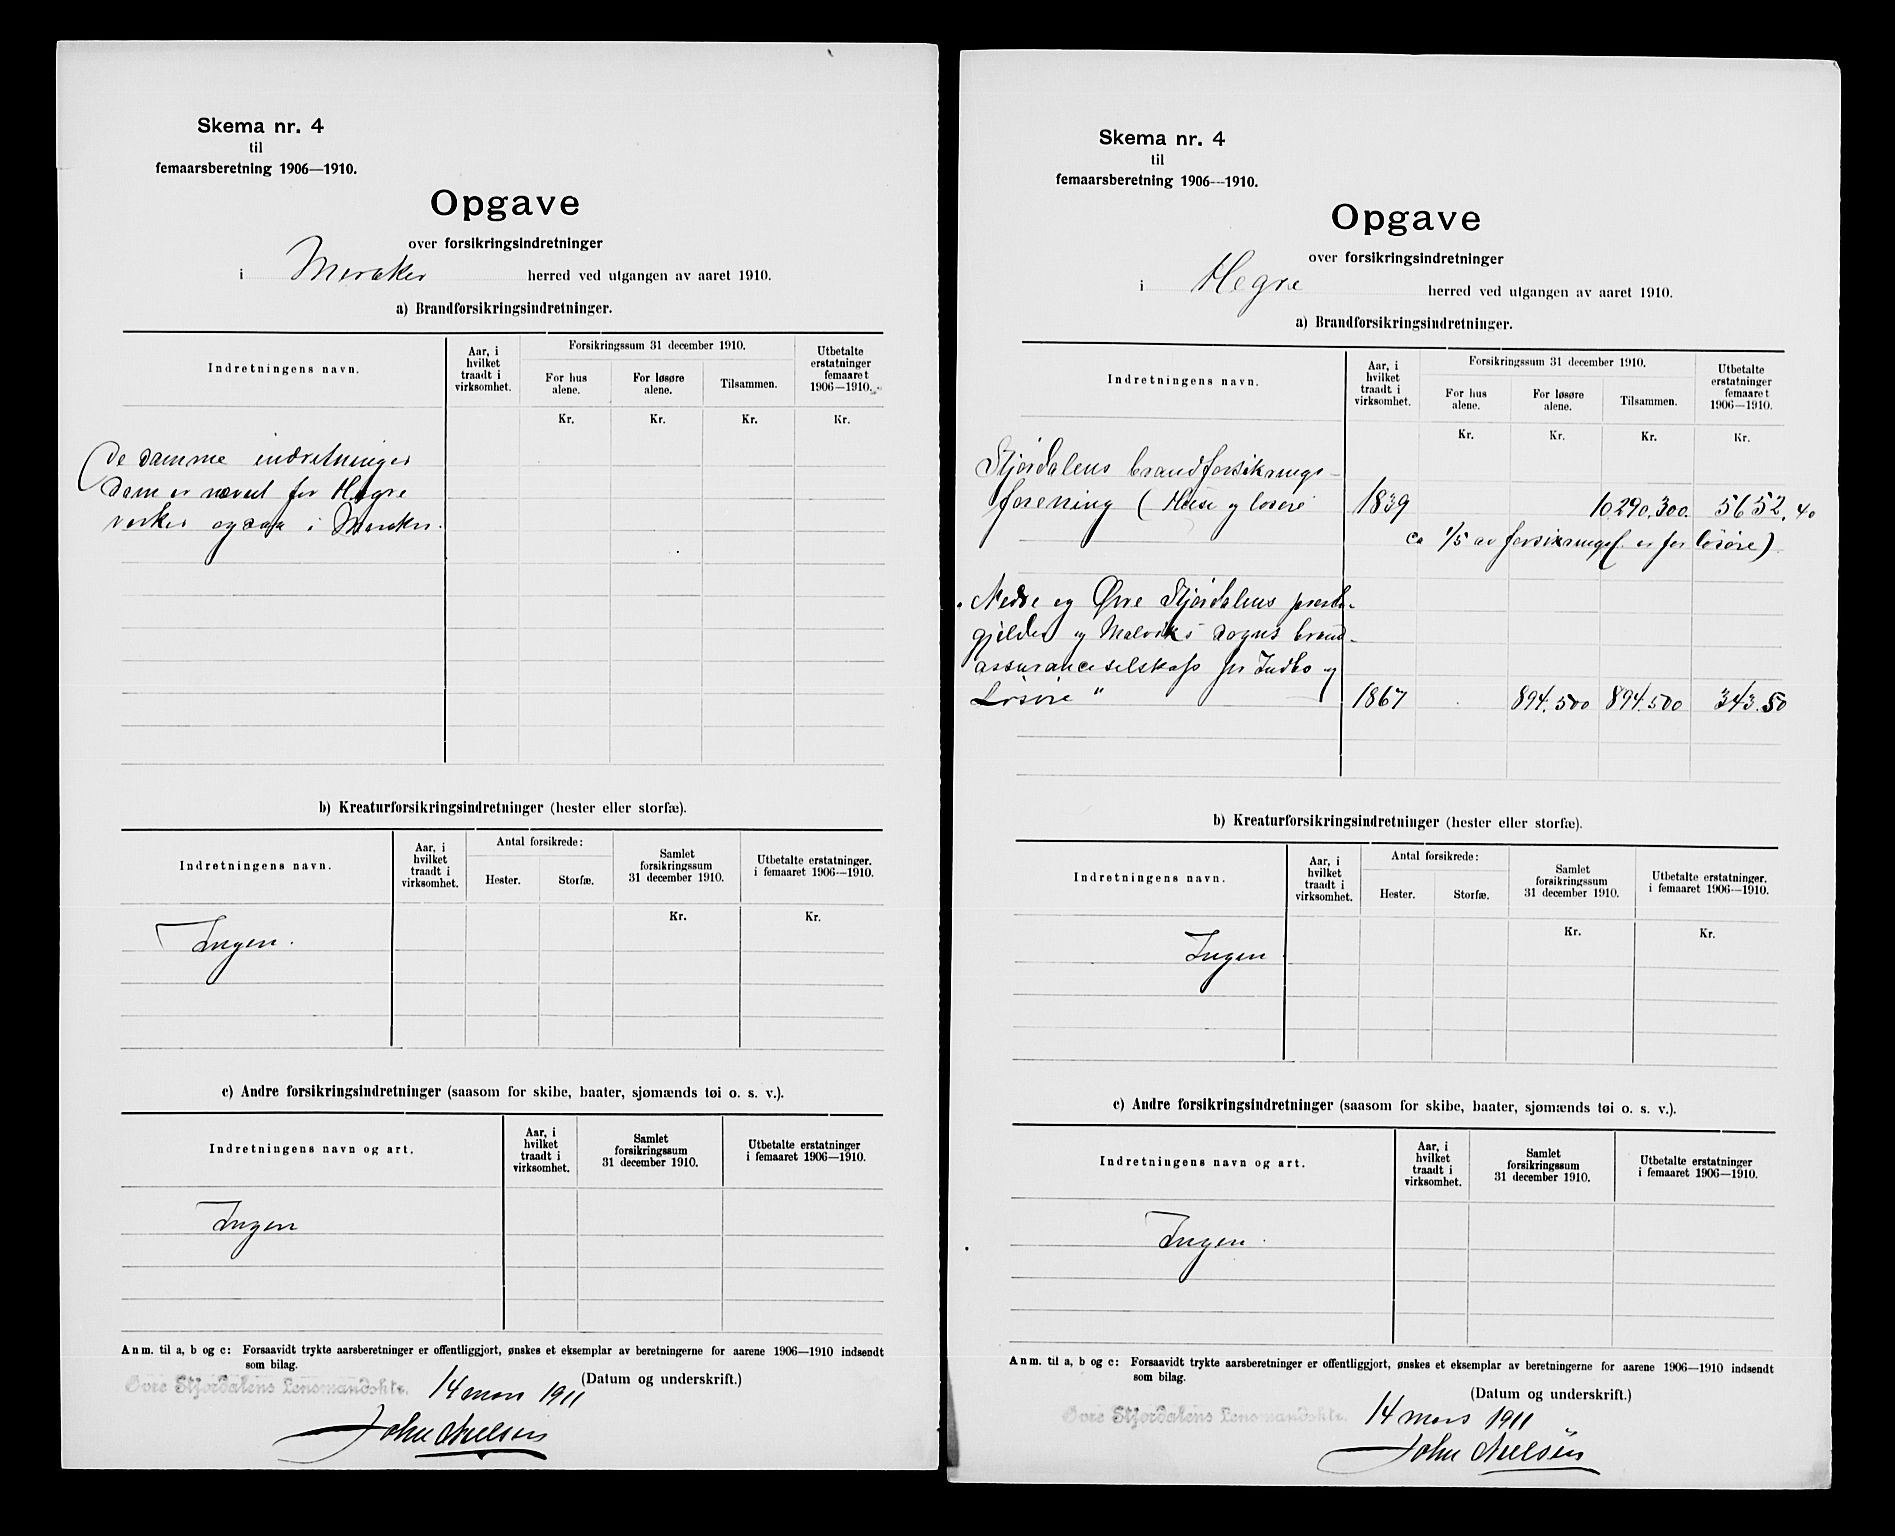 Skema nr. 4
til
femaarsberetning 1906—1910.
Opgave
over forsikringsindretninger
i Meraker herred ved utgangen av aaret 1910.
a) Brandforsikringsindretninger.
Indretningens navn.
Aar, i
hvilket
traadt i
virksomhet.
Forsikringssum 31 december 1910.
For hus
alene.
For løsøre
alene.
Tilsammen.
Utbetalte
erstatninger
femaaret
1906—1910.
Kr. Kr. Kr. Kr.
De samme indretninger
som er nævnt for Hegre
virker ogsaa i Meraker.
b) Kreaturforsikringsindretninger (hester eller storfæ).
Indretningens navn.
Aar, i
hvilket
traadt i
virksomhet.
Antal forsikrede:
Hester. Storfæ.
Samlet
forsikringssum
31 december 1910.
Utbetalte erstatninger.
i femaaret 1906—1910.
Kr. Kr.
Ingen.
c) Andre forsikringsindretninger (saasom for skibe, baater, sjømænds tøi o. s. v.).
Indretningens navn og art.
Aar, i
hvilket
traadt i
virksomhet.
Samlet
forsikringssum
31 december 1910.
Utbetalte erstatninger
i femaaret 1906—1910.
Ingen
Anm. til a, b og c: Forsaavidt trykte aarsberetninger er offentliggjort, ønskes et eksemplar av beretningerne for aarene 1906—1910 indsendt
som bilag.
(Datum og underskrift.)
Øvre Stjørdalens Lensmandsktr. 14 mars 1911
John Nielsen
Skema nr. 4
til
femaarsberetning 1906—1910.
Opgave
over forsikringsindretninger
i Hegre herred ved utgangen av aaret 1910.
a) Brandforsikringsindretninger.
Indretningens navn.
Aar, i
hvilket
traadt i
virksomhet.
Forsikringssum 31 december 1910.
For hus
alene.
For løsøre
alene.
Tilsammen.
Utbetalte
erstatninger
femaaret
1906—1910.
Kr. Kr. Kr. Kr.
Stjørdalens brandforsikrings-
forening (Huse og løsøre 1839 10.290.300. 5652.40
ca 1/5 av forsikringss. er for løsøre)
Nedre og Øvre Stjørdalens preste-
gjelder og Malviks sogns brand-
assuranceselskap for Indbo og
Løsøre" 1867 894.500 894.500 343.50
b) Kreaturforsikringsindretninger (hester eller storfæ).
Indretningens navn.
Aar, i
hvilket
traadt i
virksomhet.
Antal forsikrede:
Hester. Storfæ.
Samlet
forsikringssum
31 december 1910.
Utbetalte erstatninger.
i femaaret 1906—1910.
Kr. Kr.
Ingen.
c) Andre forsikringsindretninger (saasom for skibe, baater, sjømænds tøi o. s. v.).
Indretningens navn og art.
Aar, i
hvilket
traadt i
virksomhet.
Samlet
forsikringssum
31 december 1910.
Utbetalte erstatninger
i femaaret 1906—1910.
Ingen.
Anm. til a, b og c: Forsaavidt trykte aarsberetninger er offentliggjort, ønskes et eksemplar av beretningerne for aarene 1906—1910 indsendt
som bilag.
(Datum og underskrift.)
Øvre Stjørdalens Lensmandsktr. 14 mars 1911
John Nielsen